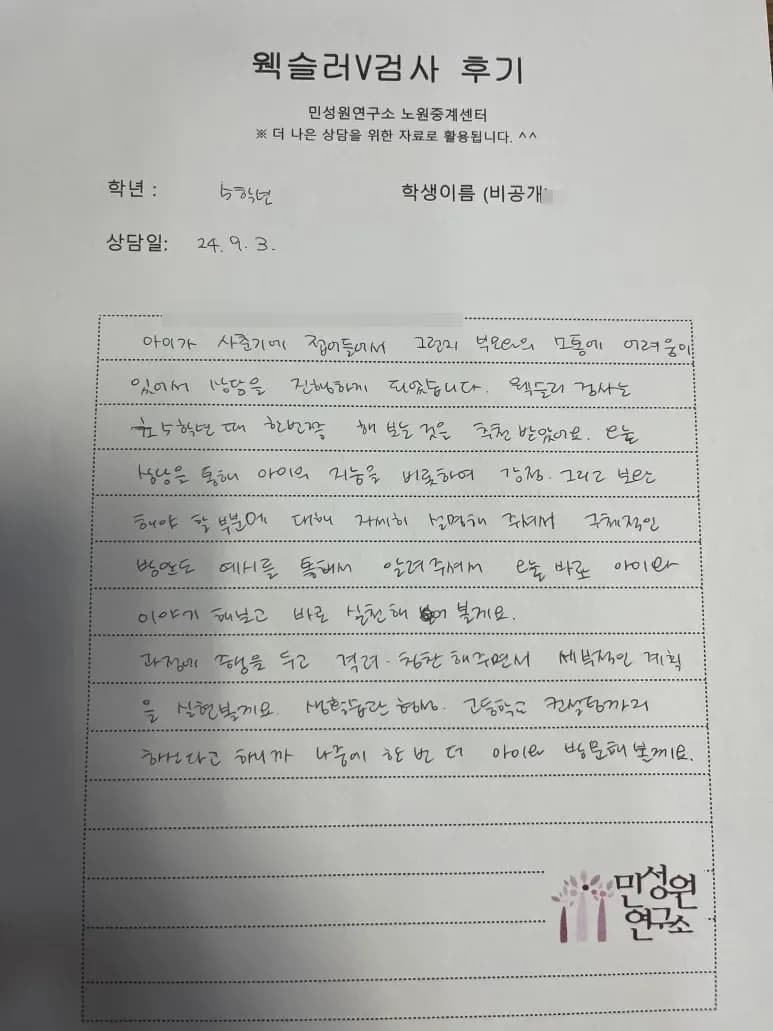 웩슬러V검사 후기
민성원연구소 노원중계센터
※ 더 나은 상담을 위한 자료로 활용됩니다. ^^
학년 : 5학년 학생이름 (비공개
상담일: 24. 9. 3.
아이가 사춘기에 접어들어서 그런지 부모와의 소통에 어려움이
있어서 상담을 진행하게 되었습니다. 웩슬러 검사는
초5학년 때 한번쯤 해 보는 것을 추천 받았어요. 오늘
상담을 통해 아이의 지능을 비롯하여 강점. 그리고 보완
해야 할 부분에 대해 자세히 설명해 주셔서 구체적인
방안도 예시를 통해서 알려주셔서 오늘 바로 아이와
이야기 해보고 바로 실천해 볼게요.
과정에 중점을 두고 격려·칭찬 해주면서 세부적인 계획
을 실현해볼게요. 생활습관 형성. 고등학교 컨설팅까지
하신다고 하니까 나중에 한 번 더 아이와 방문해 볼게요.
민성원
연구소